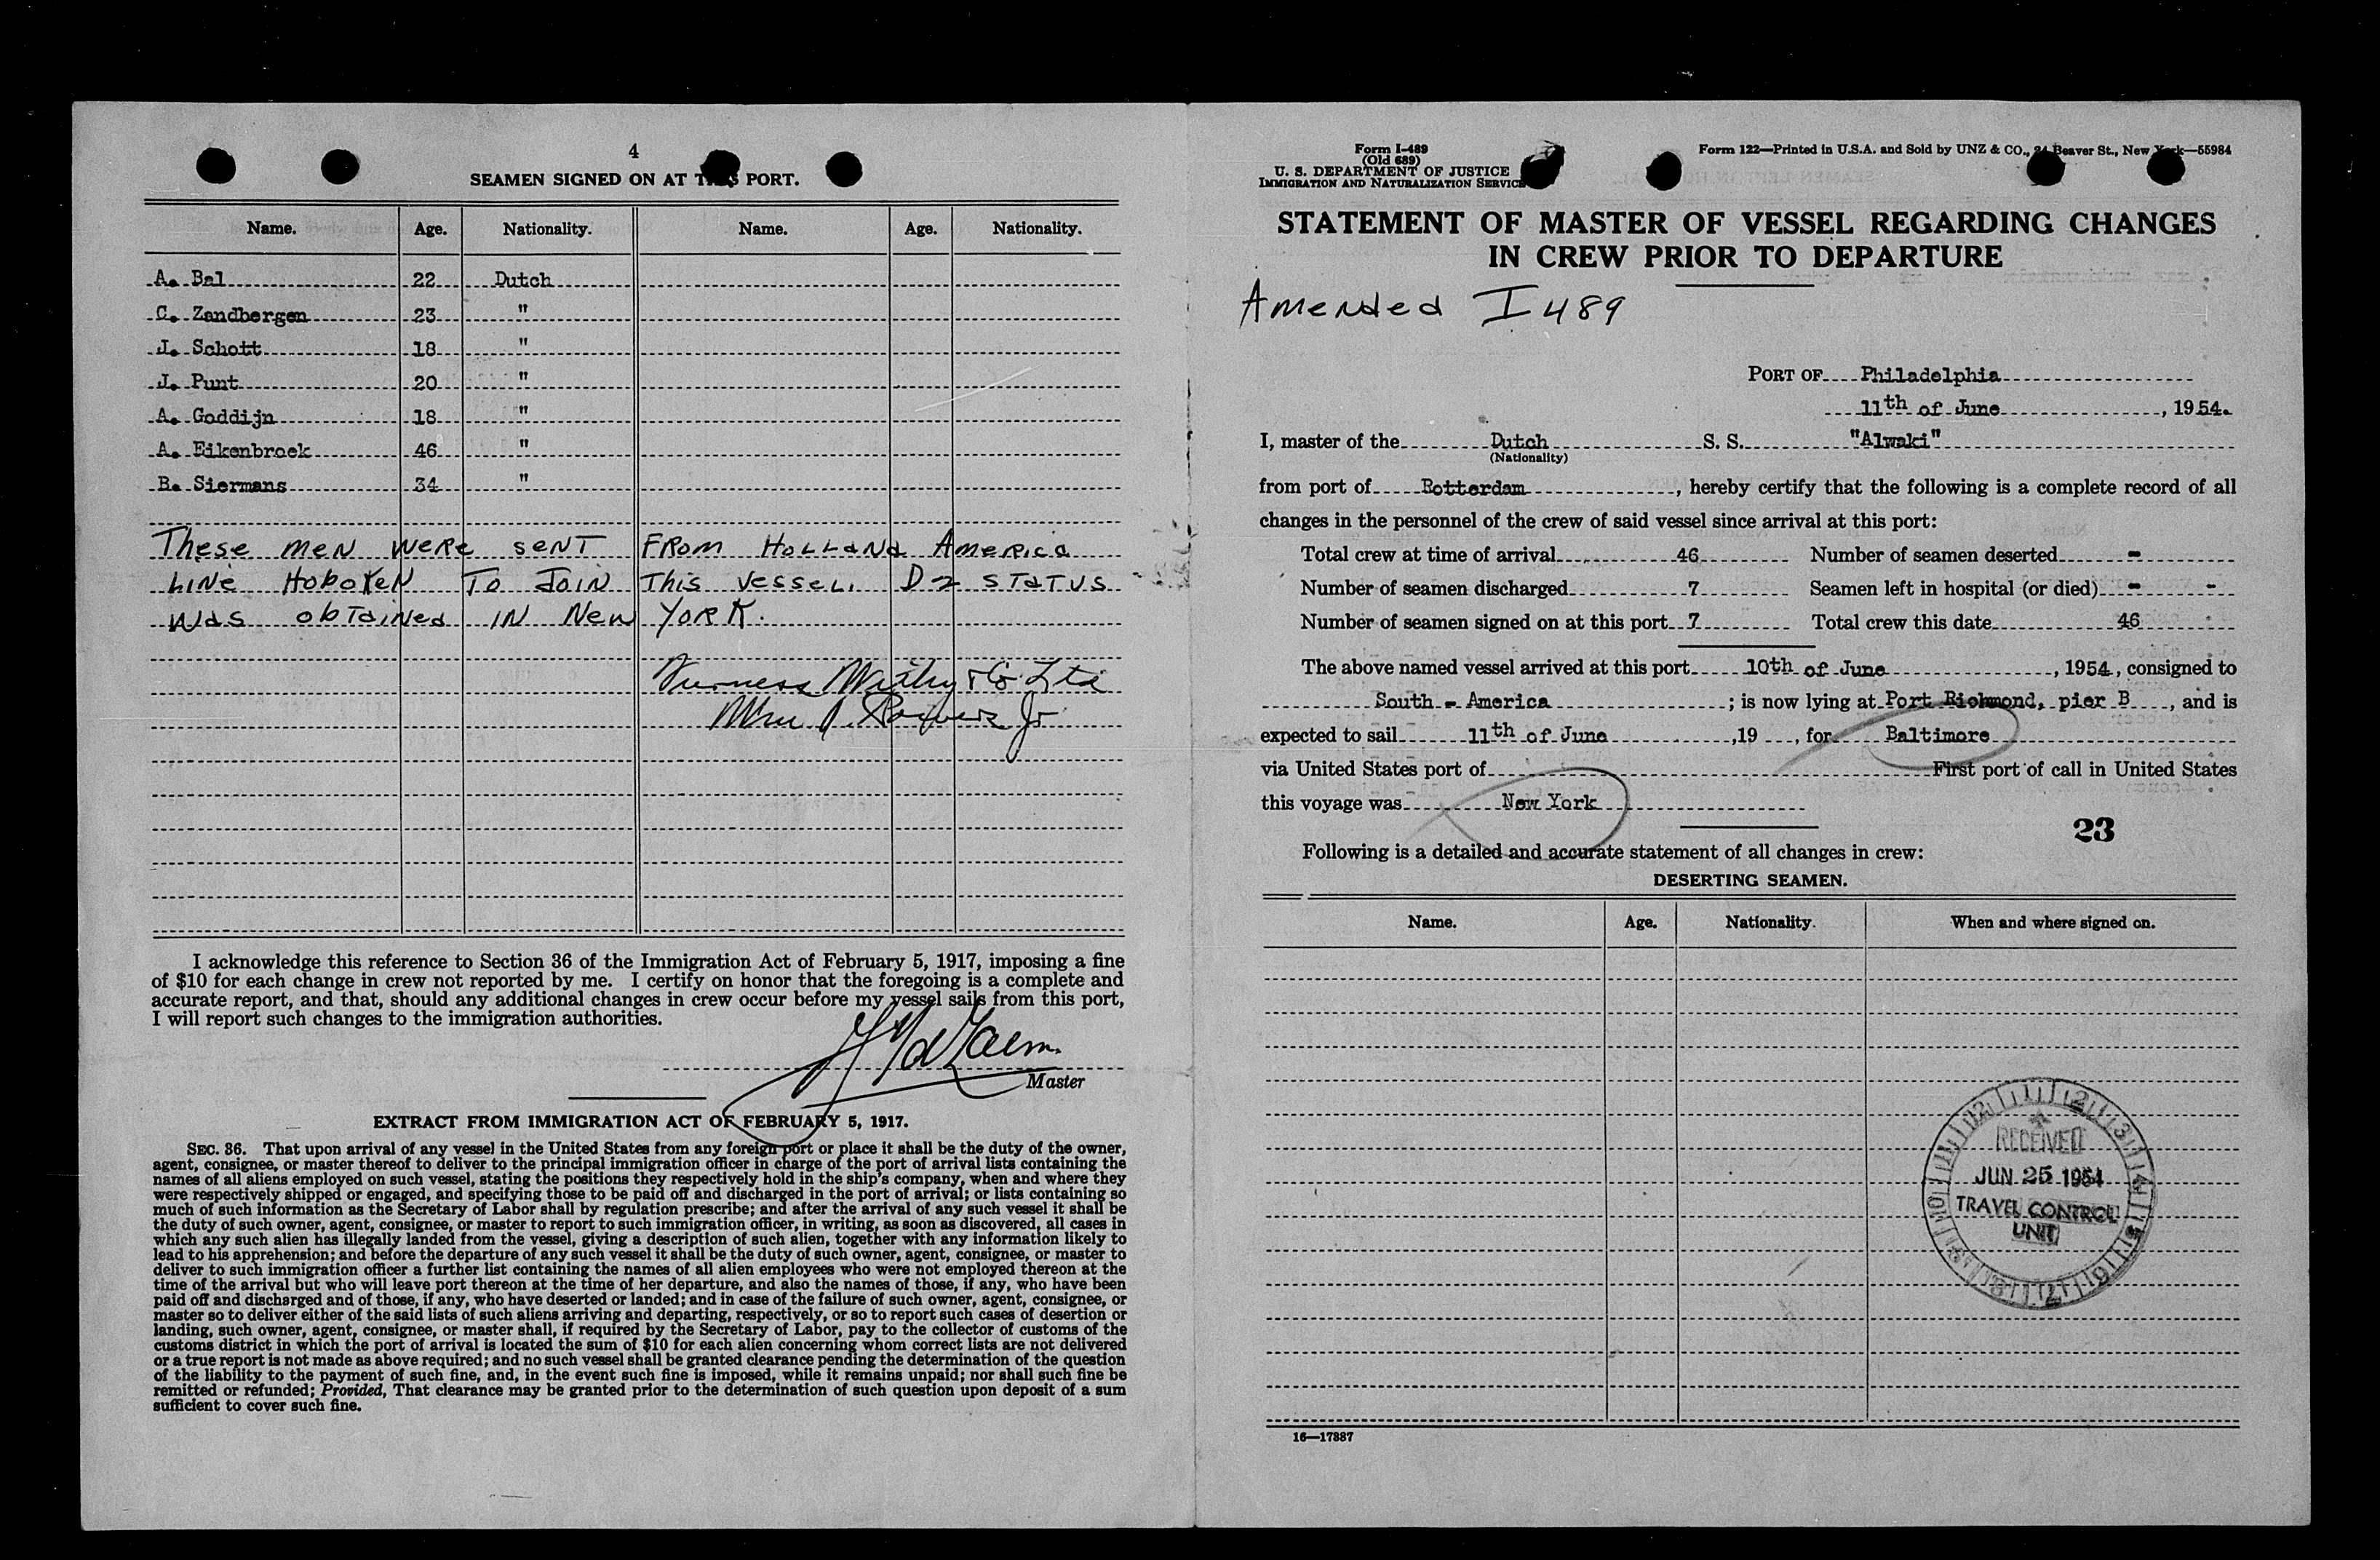 4
SEAMEN SIGNED ON AT THIS PORT.
Name. Age. Nationality. Name. Age. Nationality.
A. Bal 22 Dutch
C. Zandbergen 23 "
J. Schott 18 "
J. Punt 20 "
A. Goddijn 18 "
A. Eikenbroek 46 "
B. Siermans 34 "
These men were sent From Holland America
Line Hoboken To Join This vessel. D-2 status
was obtained in New York.
Furness Withy & Co Ltd
I acknowledge this reference to Section 36 of the Immigration Act of February 5, 1917, imposing a fine
of $10 for each change in crew not reported by me. I certify on honor that the foregoing is a complete and
accurate report, and that, should any additional changes in crew occur before my vessel sails from this port,
I will report such changes to the immigration authorities.
Master
EXTRACT FROM IMMIGRATION ACT OF FEBRUARY 5, 1917.
SEC. 36. That upon arrival of any vessel in the United States from any foreign port or place it shall be the duty of the owner,
agent, consignee, or master thereof to deliver to the principal immigration officer in charge of the port of arrival lists containing the
names of all aliens employed on such vessel, stating the positions they respectively hold in the ship's company, when and where they
were respectively shipped or engaged, and specifying those to be paid off and discharged in the port of arrival; or lists containing so
much of such information as the Secretary of Labor shall by regulation prescribe; and after the arrival of any such vessel it shall be
the duty of such owner, agent, consignee, or master to report to such immigration officer, in writing, as soon as discovered, all cases in
which any such alien has illegally landed from the vessel, giving a description of such alien, together with any information likely to
lead to his apprehension; and before the departure of any such vessel it shall be the duty of such owner, agent, consignee, or master to
deliver to such immigration officer a further list containing the names of all alien employees who were not employed thereon at the
time of the arrival but who will leave port thereon at the time of her departure, and also the names of those, if any, who have been
paid off and discharged and of those, if any, who have deserted or landed; and in case of the failure of such owner, agent, consignee, or
master so to deliver either of the said lists of such aliens arriving and departing, respectively, or so to report such cases of desertion or
landing, such owner, agent, consignee, or master shall, if required by the Secretary of Labor, pay to the collector of customs of the
customs district in which the port of arrival is located the sum of $10 for each alien concerning whom correct lists are not delivered
or a true report is not made as above required; and no such vessel shall be granted clearance pending the determination of the question
of the liability to the payment of such fine, and, in the event such fine is imposed, while it remains unpaid; nor shall such fine be
remitted or refunded; Provided, That clearance may be granted prior to the determination of such question upon deposit of a sum
sufficient to cover such fine.
Form I-489
(Old 689)
U. S. DEPARTMENT OF JUSTICE
IMMIGRATION AND NATURALIZATION SERVICE
Form 122—Printed in U.S.A. and Sold by UNZ & CO., 24 Beaver St., New York—55984
STATEMENT OF MASTER OF VESSEL REGARDING CHANGES
IN CREW PRIOR TO DEPARTURE
Amended I 489
PORT OF Philadelphia
11th of June, 1954.
I, master of the Dutch S. S. "Alwaki"
(Nationality)
from port of Rotterdam, hereby certify that the following is a complete record of all
changes in the personnel of the crew of said vessel since arrival at this port:
Total crew at time of arrival 46 Number of seamen deserted -
Number of seamen discharged 7 Seamen left in hospital (or died) - -
Number of seamen signed on at this port 7 Total crew this date 46
The above named vessel arrived at this port 10th of June, 1954, consigned to
South - America; is now lying at Port Richmond, pier B, and is
expected to sail 11th of June, 19 , for Baltimore
via United States port of First port of call in United States
this voyage was New York
23
Following is a detailed and accurate statement of all changes in crew:
DESERTING SEAMEN.
Name. Age. Nationality. When and where signed on.
RECEIVED
JUN 25 1954
TRAVEL CONTROL
UNIT
16—17887